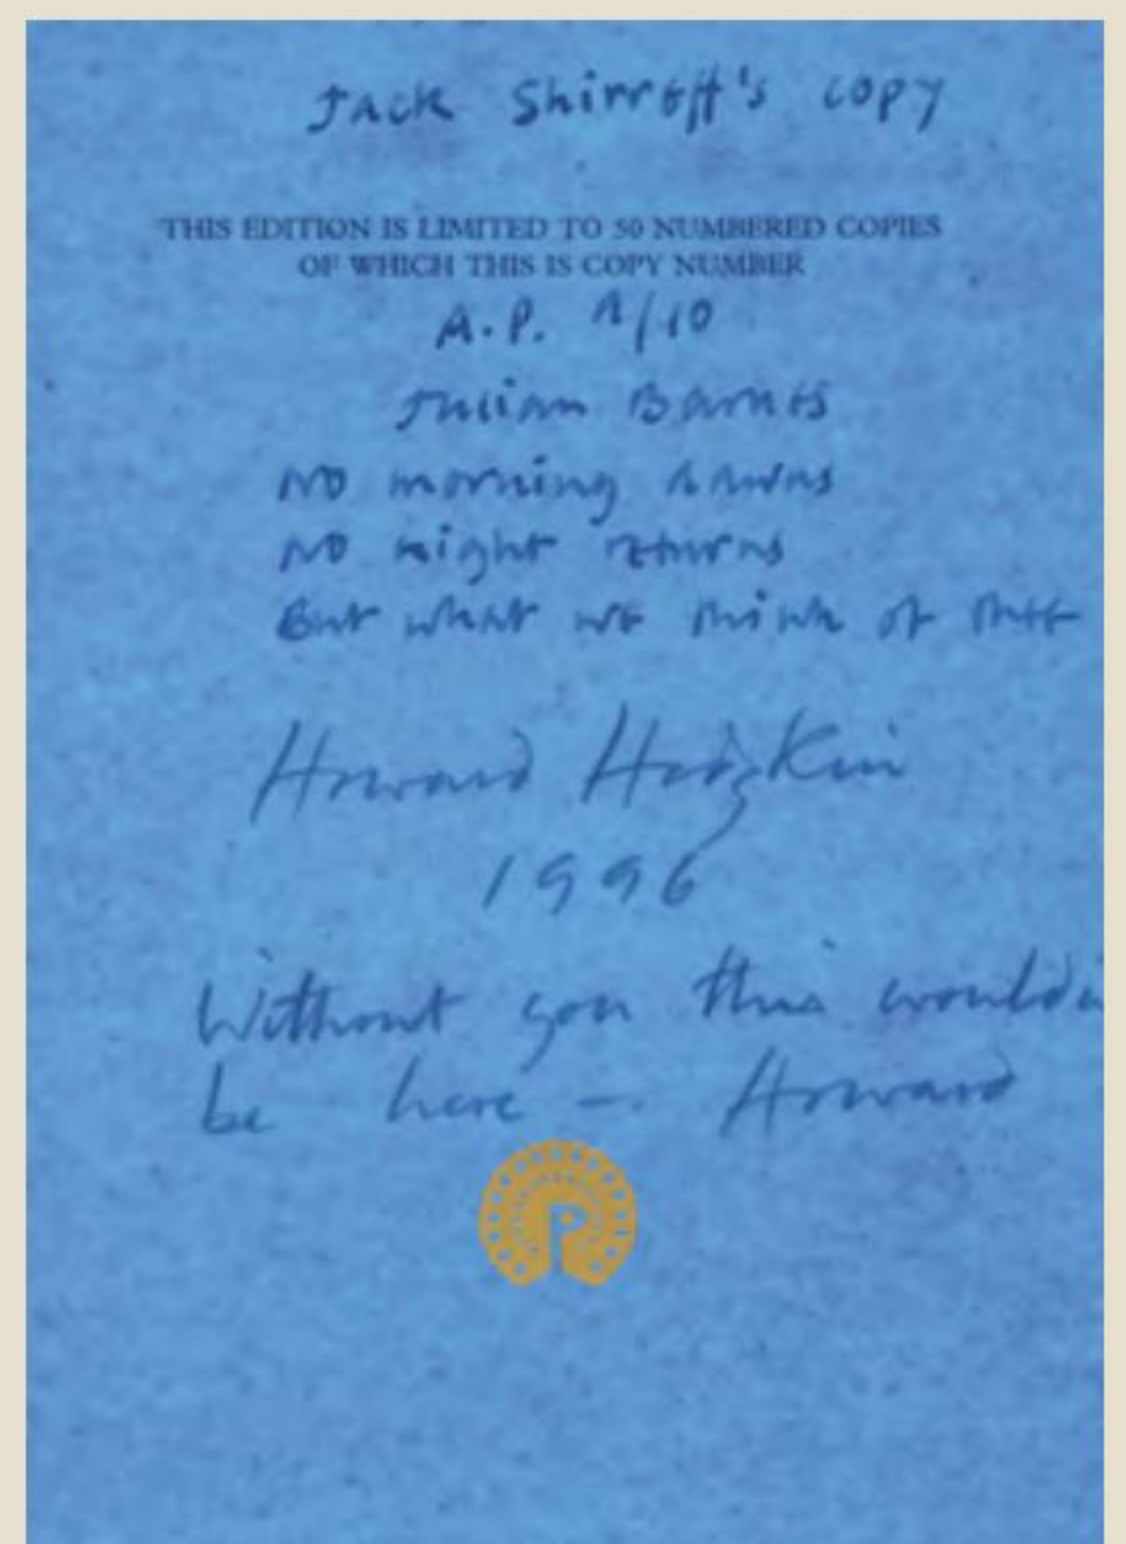 Jack Shirreff's copy
THIS EDITION IS LIMITED TO 50 NUMBERED COPIES
OF WHICH THIS IS COPY NUMBER
A.P. /10
Julian Barnes
No morning dawns
No night returns
But what we think of thee
Howard Hodgkin
1996
Without you this
be here — Howard
P